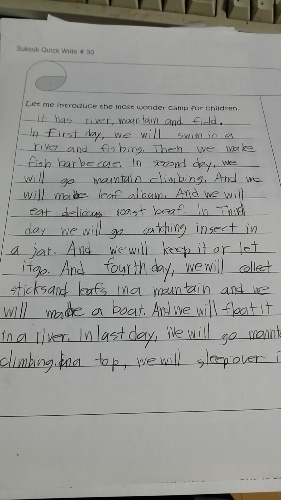 Suksuk Quick Write # 30
Let me introduce the most wonder camp for children.
It has river, mountain and field.
In first day, we will swim in a
river and fishing. Then we make
fish barbecue. In second day, we
will go mountain climbing. And we
will make leaf album. And we will
eat delicous roast beaf. In Third
day we will go catching insect in
a jar. And we will keep it or let
it go. And fourth day, we will collect
sticks and leafs in a mountain and we
will make a boat. And we will float it
in a river. In last day, We will go
climbing. In a top, we will sleep over